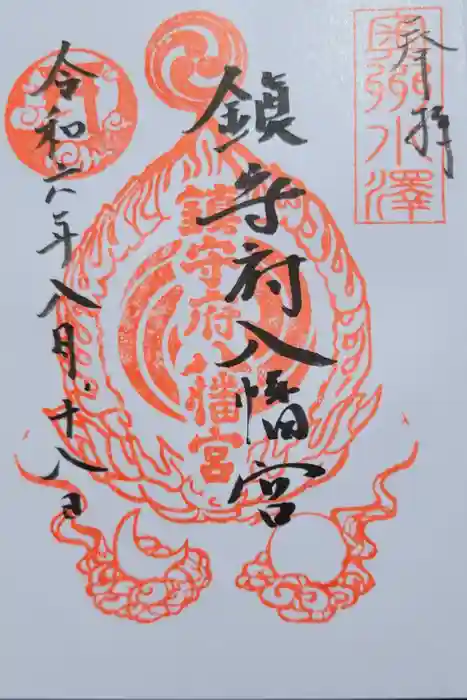 奉拝
奥州水澤
鎮守府八幡宮
鎮守府八幡宮
令和六年八月十八日